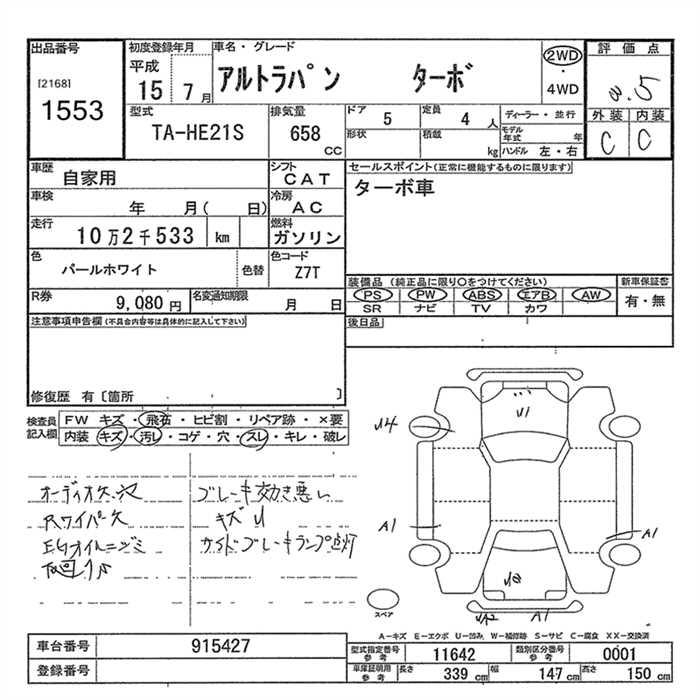 出品番号
[2168]
1553
初度登録年月
平成
15 7月
車名・グレード
アルトラパン ターボ
2WD
・
4WD
評価点
3.5
外装 内装
C C
型式
TA-HE21S
排気量
658
CC
ドア
5
定員
4 人
形状
積載
kg
ディーラー・並行
モデル年式 年
ハンドル 左・右
車歴
自家用
シフト
CAT
車検
年 月( 日)
冷房
AC
走行
10万2千533 km
燃料
ガソリン
色
パールホワイト
色替
色コード
Z7T
R券
9,080 円
名変通知期限
月 日
セールスポイント(正常に機能するものに限ります)
ターボ車
装備品 (純正品に限り○をつけてください)
PS PW ABS エアB AW
SR ナビ TV カワ
新車保証書
有・無
後日品
注意事項申告欄(不具合内容等は具体的に記入して下さい)
修復歴 有〔箇所 〕
検査員
記入欄
FW キズ・飛石・ヒビ割・リペア跡・×要
内装 キズ・汚レ・コゲ・穴・スレ・キレ・破レ
オーディオ欠 穴
Rワイパー欠
Egオイルニジミ
ブレーキ効き悪い
キズ U
サイドブレーキランプ点灯
U1
U4
A1
A1
A1
スペア
A-キズ E-エクボ U-凹み W-補修跡 S-サビ C-腐食 XX-交換済
車台番号
915427
登録番号
型式指定番号
参考
11642
類別区分番号
参考
0001
車庫証明用
参考
長さ 339 cm 幅 147 cm 高さ 150 cm